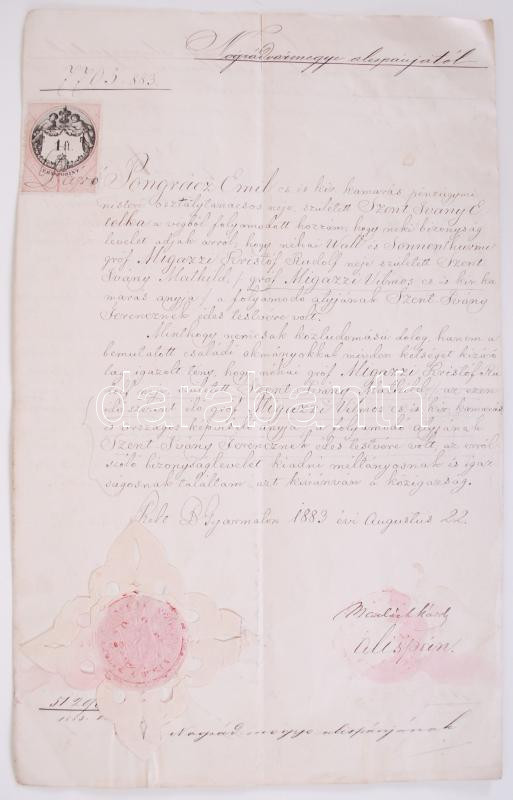 Nográdvármegye alispánjától
7705/883.
1 ft.
Báró Pongrácz Emil cs és kir. kamarás pénzügymi
nisteri osztálytanácsos neje, született Szent Iványi E
telka a végből folyamodott hozzám, hogy neki bizonyság
levelet adjak arról, hogy néhai Wall és Sonnenthurmi
gróf Migazzi Kristóf Rudolf neje született Szent
Iványi Mathild, / gróf Migazzi Vilmos cs és kir. ka
marás anyja / a folyamodó atyjának Szent Iványi
Ferencznek édes testvére volt.
Minthogy nemcsak köztudomású dolog, hanem a
bemutatott családi okmányokkal minden kétséget kizáró
lag igazolt tény, hogy néhai gróf Migazzi Kristóf Ru
dolf neje született Szent Iványi Mathild / az ezen
idő szerint élő gróf Migazzi Vilmos cs és kir. kamarás
és országos képviselő anyja / a folyamodó atyjának
Szent Iványi Ferencznek édes testvére volt, az erről
szóló bizonyságlevelet kiadni méltányosnak és igaz
ságosnak találtam, azt kívánván a közigazság.
Kelt B Gyarmaton 1883 évi Augustus 22.
alispán.
Nográd megye alispánjának
darabanth